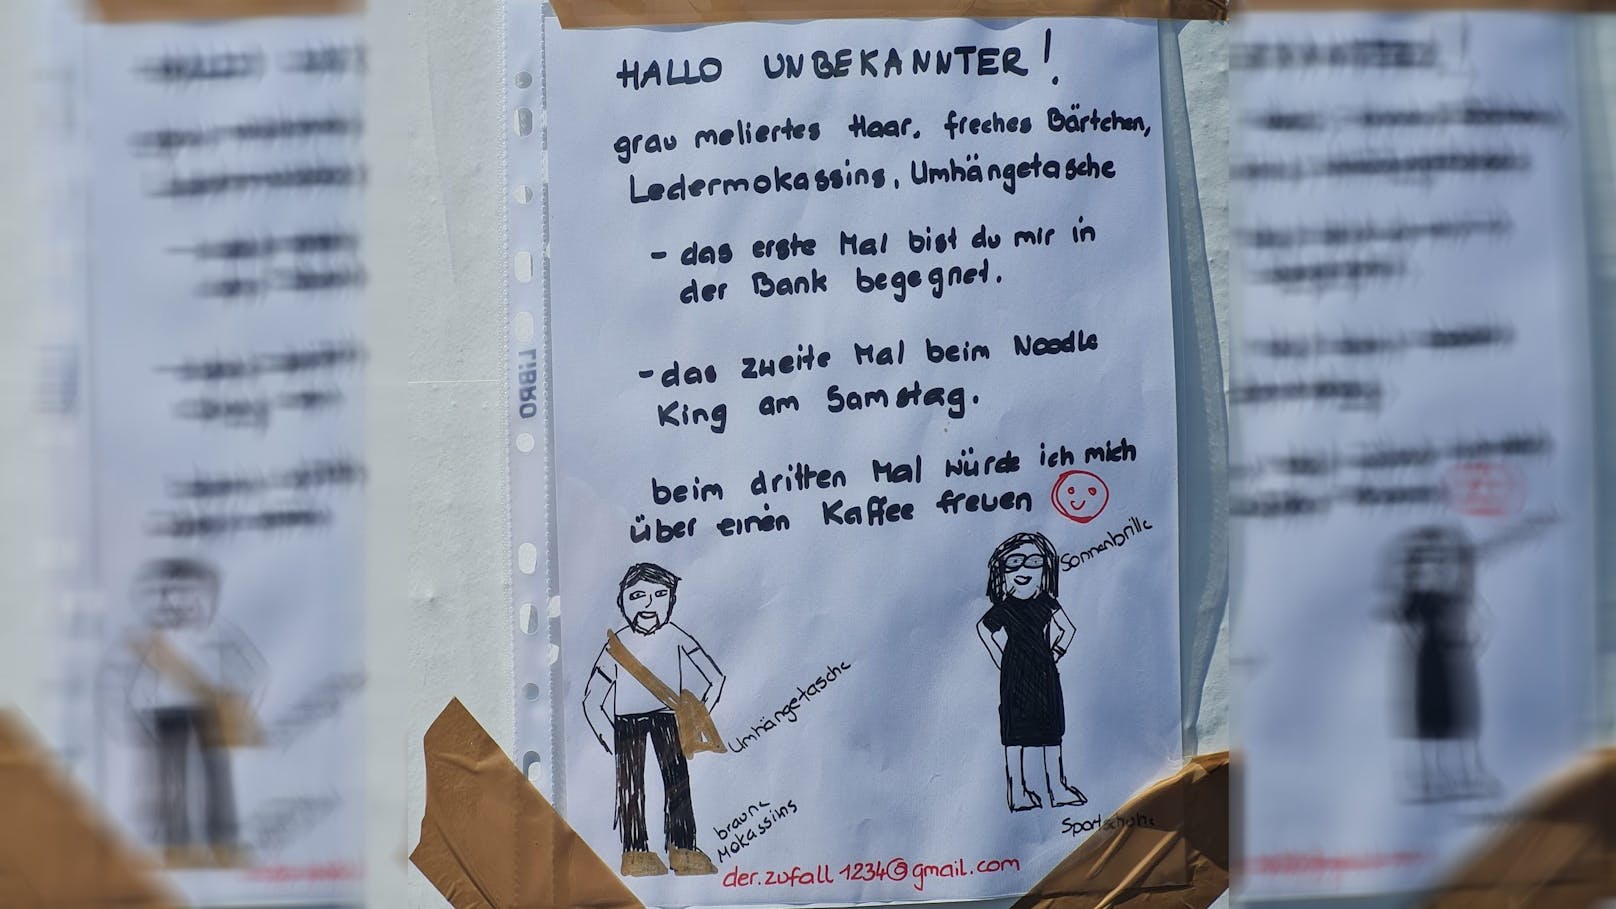 HALLO UNBEKANNTER!
grau meliertes Haar, freches Bärtchen,
Ledermokassins, Umhängetasche
- das erste Mal bist du mir in
der Bank begegnet.
- das zweite Mal beim Noodle
King am Samstag.
beim dritten Mal würde ich mich
über einen Kaffee freuen
Sonnenbrille
Umhängetasche
braune
Mokassins
Sportschuhe
der.zufall1234@gmail.com
LIBRO